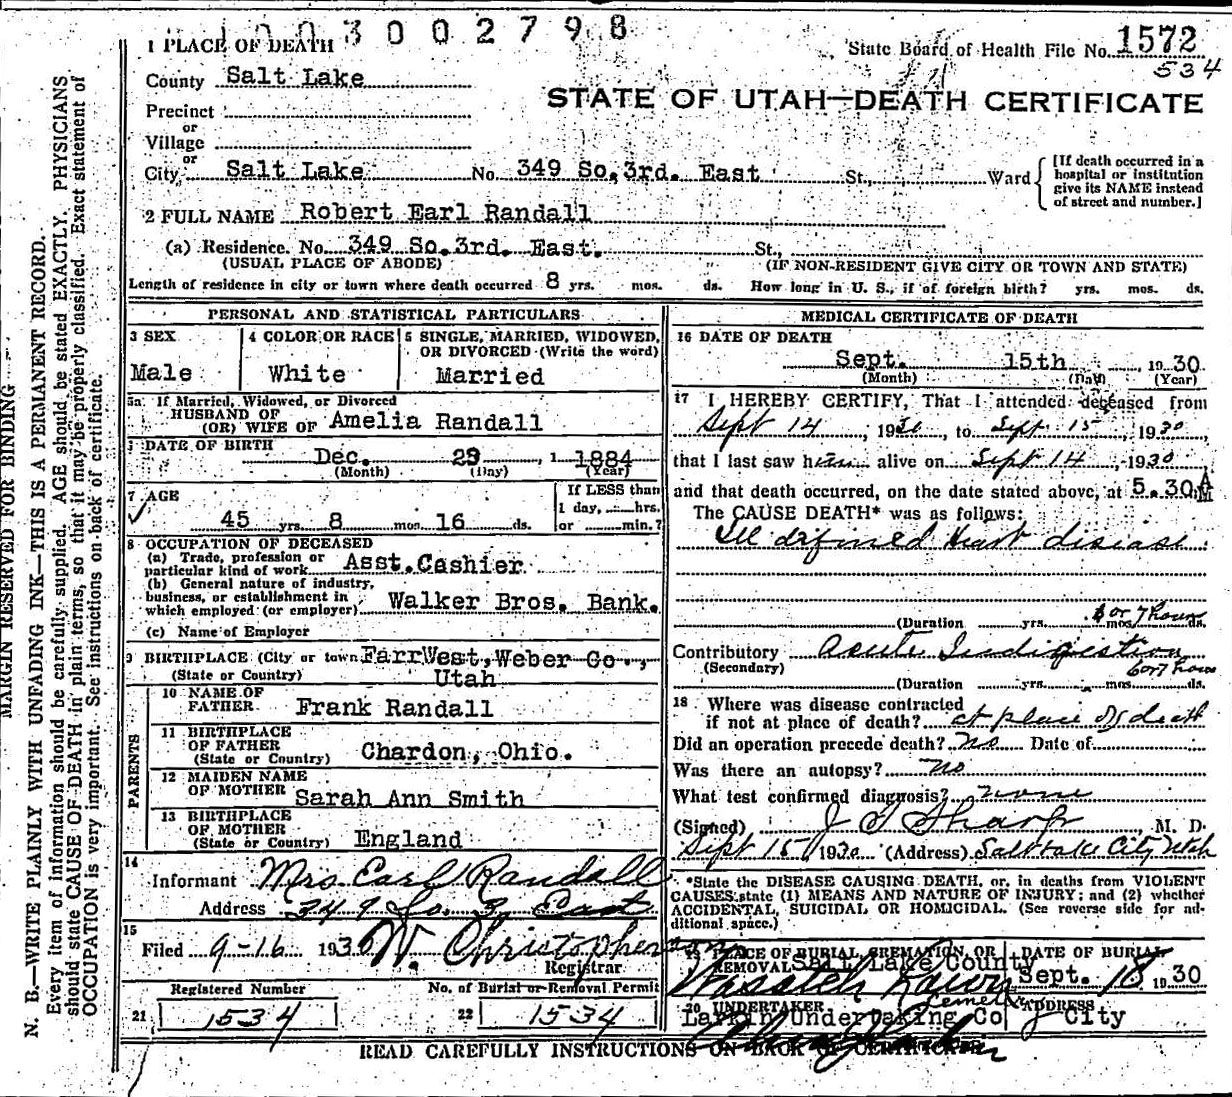 003002798
1 PLACE OF DEATH
State Board of Health File No. 1572
534
County Salt Lake
STATE OF UTAH—DEATH CERTIFICATE
Precinct
or
Village
or
City, Salt Lake No. 349 So. 3rd. East St., Ward
[If death occurred in a
hospital or institution
give its NAME instead
of street and number.]
2 FULL NAME Robert Earl Randall
(a) Residence. No. 349 So. 3rd. East. St.,
(USUAL PLACE OF ABODE) (IF NON-RESIDENT GIVE CITY OR TOWN AND STATE)
Length of residence in city or town where death occurred 8 yrs. mos. ds. How long in U. S., if of foreign birth? yrs. mos. ds.
PERSONAL AND STATISTICAL PARTICULARS
3 SEX
Male
4 COLOR OR RACE
White
5 SINGLE, MARRIED, WIDOWED,
OR DIVORCED (Write the word)
Married
5a If Married, Widowed, or Divorced
HUSBAND OF
(OR) WIFE OF Amelia Randall
DATE OF BIRTH
Dec. 29, 1 1884
(Month) (Day) (Year)
7 AGE
45 yrs. 8 mos. 16 ds.
If LESS than
1 day, hrs.
or min.?
8 OCCUPATION OF DECEASED
(a) Trade, profession or
particular kind of work Asst. Cashier
(b) General nature of industry,
business, or establishment in
which employed (or employer) Walker Bros. Bank.
(c) Name of Employer
9 BIRTHPLACE (City or town Farr West, Weber Co.,
(State or Country) Utah
PARENTS
10 NAME OF
FATHER Frank Randall
11 BIRTHPLACE
OF FATHER
(State or Country) Chardon, Ohio.
12 MAIDEN NAME
OF MOTHER Sarah Ann Smith
13 BIRTHPLACE
OF MOTHER
(State or Country) England
14
Informant Mrs. Earl Randall
Address 349 So. 3 East
15
Filed 9-16 1930 W. Christopherson
Registrar
Registered Number
21 1534
No. of Burial or Removal Permit
22 1534
MEDICAL CERTIFICATE OF DEATH
16 DATE OF DEATH
Sept. 15th, 1930
(Month) (Day) (Year)
17 I HEREBY CERTIFY, That I attended deceased from
Sept 14, 1930, to Sept 15, 1930,
that I last saw him alive on Sept 14, 1930
and that death occurred, on the date stated above, at 5.30 AM
The CAUSE DEATH* was as follows:
Ill defined Heart disease
(Duration yrs. mos. ds. 6 or 7 hours
Contributory Acute Indigestion
(Secondary) 6 or 7 hours
(Duration yrs. mos. ds.
18 Where was disease contracted
if not at place of death? at place of death
Did an operation precede death? No Date of
Was there an autopsy? no
What test confirmed diagnosis? none
(Signed) J T Sharp, M. D.
Sept 15, 1930 (Address) Salt Lake City Utah
*State the DISEASE CAUSING DEATH, or, in deaths from VIOLENT
CAUSES state (1) MEANS AND NATURE OF INJURY; and (2) whether
ACCIDENTAL, SUICIDAL OR HOMICIDAL. (See reverse side for ad-
ditional space.)
19 PLACE OF BURIAL, CREMATION, OR
REMOVAL Salt Lake County
Wasatch Lawn
Cemetery
DATE OF BURIAL
Sept. 18 1930
20 UNDERTAKER
Larkin Undertaking Co
ADDRESS
City
READ CAREFULLY INSTRUCTIONS ON BACK OF CERTIFICATE
MARGIN RESERVED FOR BINDING
N. B.—WRITE PLAINLY WITH UNFADING INK—THIS IS A PERMANENT RECORD.
Every item of information should be carefully supplied. AGE should be stated EXACTLY. PHYSICIANS
should state CAUSE OF DEATH in plain terms, so that it may be properly classified. Exact statement of
OCCUPATION is very important. See instructions on back of certificate.